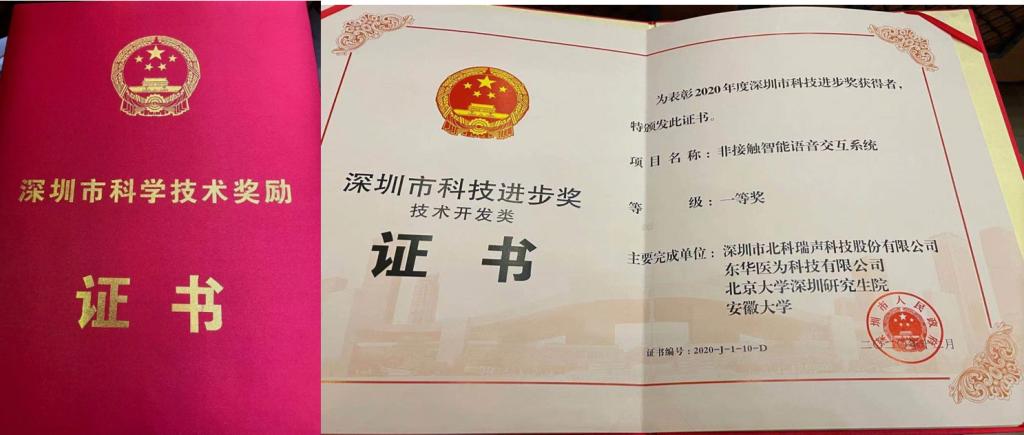 深圳市科学技术奖励
证书
深圳市科技进步奖
技术开发类
证书
为表彰2020年度深圳市科技进步奖获得者,
特颁发此证书。
项目名称:非接触智能语音交互系统
等级:一等奖
主要完成单位:深圳市北科瑞声科技股份有限公司
东华医为科技有限公司
北京大学深圳研究生院
安徽大学
证书编号:2020-J-1-10-D
深圳市人民政府